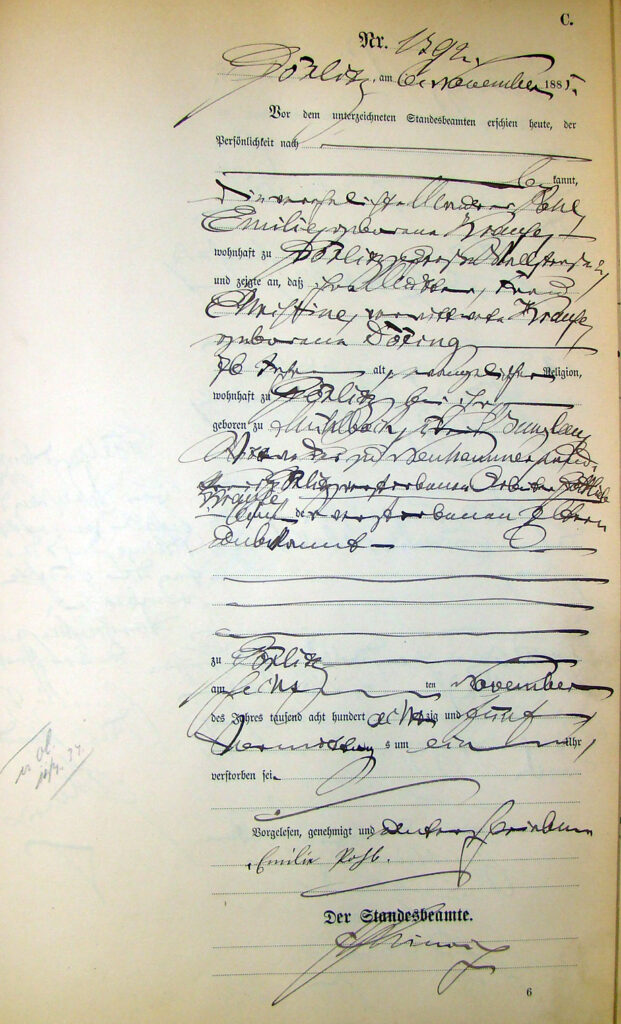 C.
Nr. 1292.
Görlitz, am 6. November 1885.
Vor dem unterzeichneten Standesbeamten erschien heute, der
Persönlichkeit nach
be kannt,
die verehelichte
Emilie, geborene Krause,
wohnhaft zu Görlitz
und zeigte an, daß ihre Mutter, Frau
Christine, verwittwete Krause,
geborene Döring,
76 Jahre alt, evangelischer Religion,
wohnhaft zu Görlitz bei ihr,
geboren zu Mühlbock, Kreis Bunzlau,
Wittwe des zu Neuhammer
verstorbenen Arbeiter Gottlieb
Krause,
der verstorbenen Eltern
unbekannt
zu Görlitz
am sechs ten November
des Jahres tausend acht hundert achtzig und fünf
Vormittags um ein Uhr,
verstorben sei.
Vorgelesen, genehmigt und unterschrieben
Emilie Pohl.
Der Standesbeamte.
6